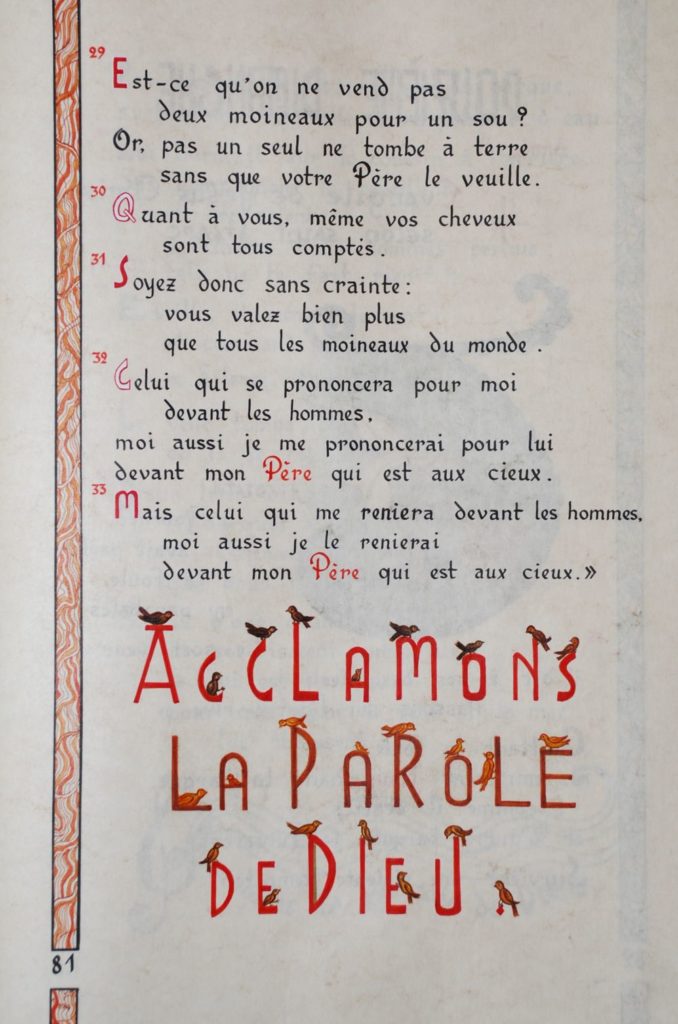 29
Est-ce qu'on ne vend pas
deux moineaux pour un sou ?
Or, pas un seul ne tombe à terre
sans que votre Père le veuille.
30
Quant à vous, même vos cheveux
sont tous comptés.
31
Soyez donc sans crainte :
vous valez bien plus
que tous les moineaux du monde .
32
Celui qui se prononcera pour moi
devant les hommes,
moi aussi je me prononcerai pour lui
devant mon Père qui est aux cieux.
33
Mais celui qui me reniera devant les hommes,
moi aussi je le renierai
devant mon Père qui est aux cieux. »
ACCLAMONS
LA PAROLE
DE DIEU.
81